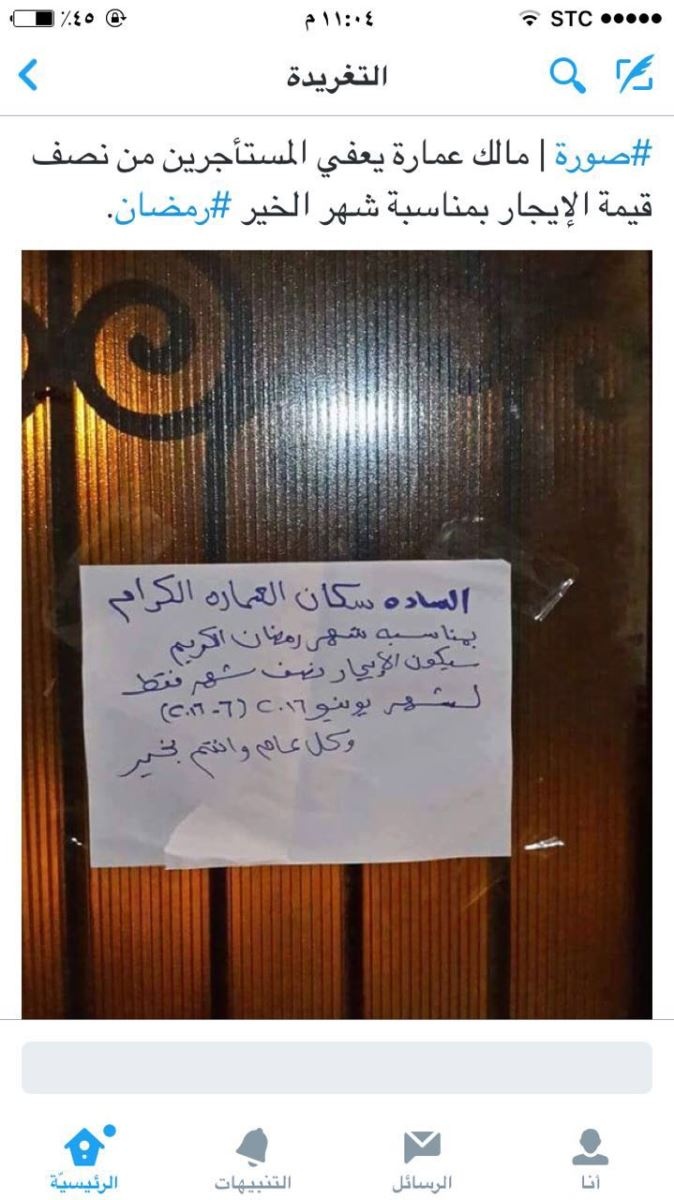 STC ١١:٠٤ م ٪٤٥
التغريدة
#صورة | مالك عمارة يعفي المستأجرين من نصف
قيمة الإيجار بمناسبة شهر الخير #رمضان.
الساده سكان العماره الكرام
بمناسبه شهر رمضان الكريم
سيكون الإيجار نصف شهر فقط
لشهر يونيو ٢٠١٦ (٦-٢٠١٦)
وكل عام وانتم بخير
أنا الرسائل التنبيهات الرئيسيّة